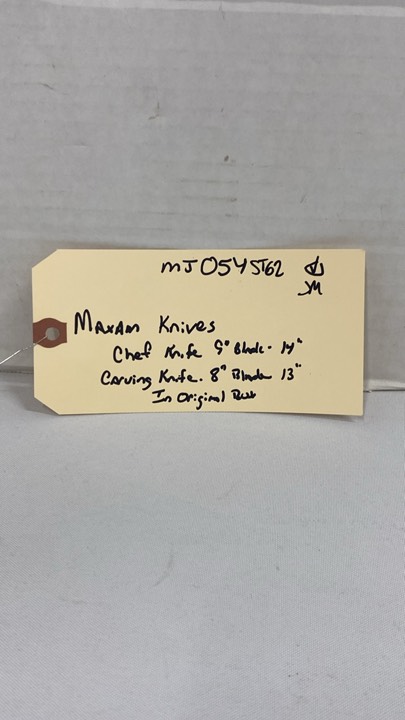 MJ054ST62
JM
Maxam Knives
Chef Knife 9" Blade - 14"
Carving Knife. 8" Blade 13"
In Original